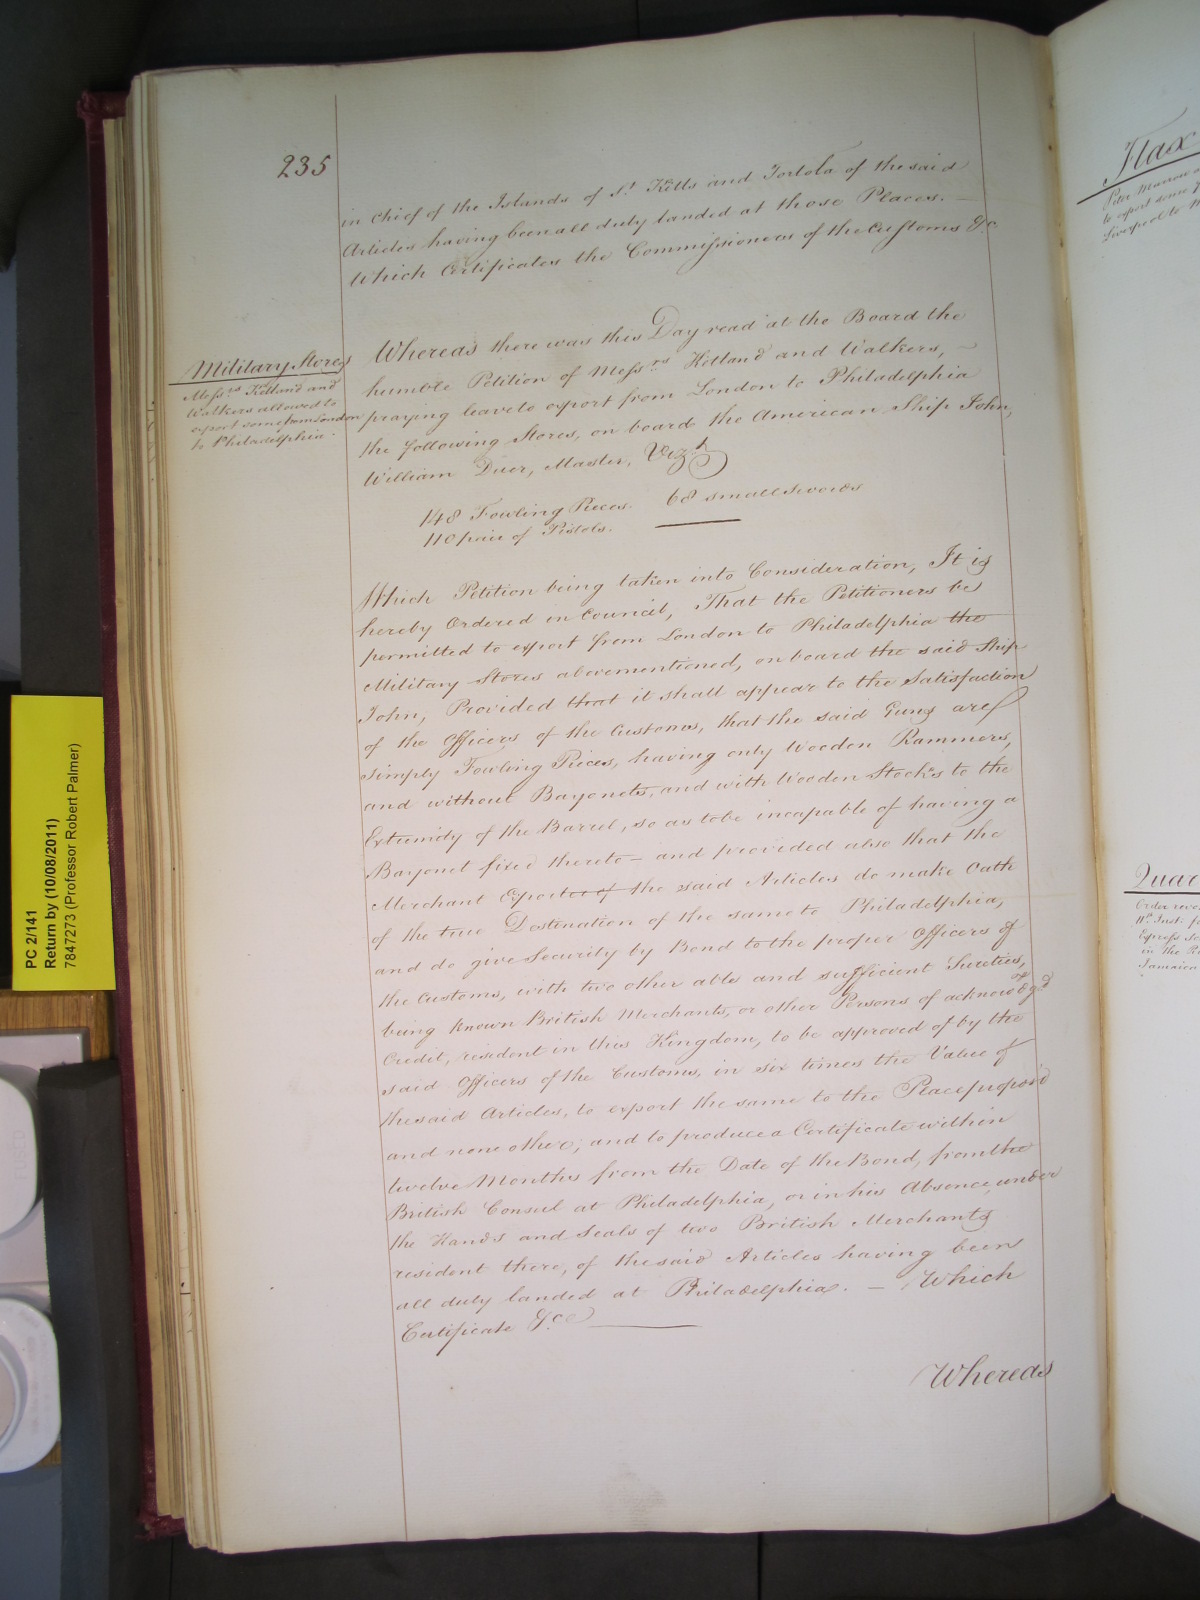 235
in Chief of the Islands of St. Kitts and Tortola of the said
Articles having been all duly landed at those Places. —
Which Certificates the Commissioners of the Customs &c.
Military Stores
Messrs. Ketland and
Walkers allowed to
export some from London
to Philadelphia.
Whereas there was this Day read at the Board the
humble Petition of Messrs. Ketland and Walkers, —
praying leave to export from London to Philadelphia
the following Stores, on board the American Ship John,
William Duer, Master, Vizt.
148 Fowling Pieces. 68 small Swords
110 pair of Pistols.
Which Petition being taken into Consideration, It is
hereby Ordered in Council, That the Petitioners be
permitted to export from London to Philadelphia the
Military Stores abovementioned, on board the said Ship
John, Provided that it shall appear to the Satisfaction
of the Officers of the Customs, that the said Guns are
simply Fowling Pieces, having only Wooden Rammers,
and without Bayonets, and with Wooden Stocks to the
Extremity of the Barrel, so as to be incapable of having a
Bayonet fixed thereto — and provided also that the
Merchant Exporter of the said Articles do make Oath
of the true Destination of the same to Philadelphia,
and do give Security by Bond to the proper Officers of
the Customs, with two other able and sufficient Sureties,
being known British Merchants, or other Persons of acknowledg'd
Credit, resident in this Kingdom, to be approved of by the
said Officers of the Customs, in six times the Value of
the said Articles, to export the same to the Place propos'd
and none other; and to produce a Certificate within
twelve Months from the Date of the Bond, from the
British Consul at Philadelphia, or in his Absence, under
the Hands and Seals of two British Merchants
resident there, of the said Articles having been
all duly landed at Philadelphia. — Which
Certificate &c.
Whereas
Flax
to export some
Liverpool to
Order
in the
Jamaica
PC 2/141
Return by (10/08/2011)
7847273 (Professor Robert Palmer)